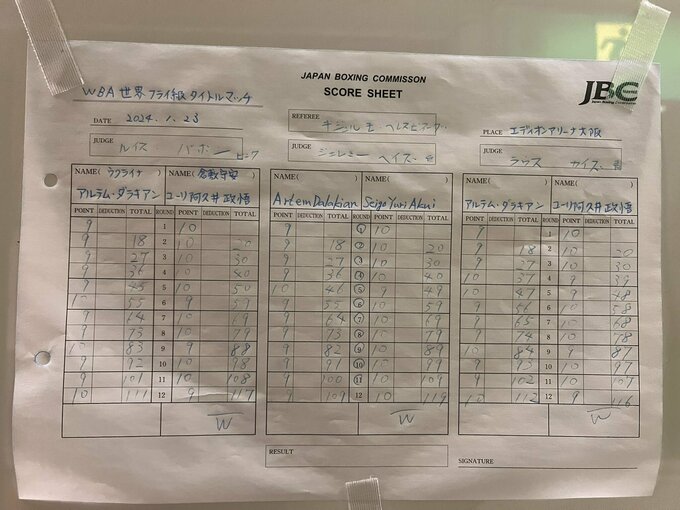 JAPAN BOXING COMMISSON
SCORE SHEET
JBC
WBA 世界フライ級タイトルマッチ
DATE 2024.1.23
REFEREE
PLACE エディオンアリーナ大阪
JUDGE ルイス パボン
JUDGE ジェレミー ヘイズ
JUDGE ラウス
NAME( ウクライナ ) NAME( 倉敷守安 ) NAME( ) NAME( ) NAME( ) NAME( )
アルテム・ダラキアン ユーリ阿久井政悟 Artem Dalakian Seigo Yuri Akui アルテム・ダラキアン ユーリ阿久井政悟
POINT DEDUCTION TOTAL ROUND POINT DEDUCTION TOTAL POINT DEDUCTION TOTAL ROUND POINT DEDUCTION TOTAL POINT DEDUCTION TOTAL ROUND POINT DEDUCTION TOTAL
9 1 10 9 1 10 9 1 10
9 18 2 10 20 9 18 2 10 20 9 18 2 10 20
9 27 3 10 30 9 27 3 10 30 9 27 3 10 30
9 36 4 10 40 9 36 4 10 40 10 37 4 9 39
9 45 5 10 50 10 46 5 9 49 10 47 5 9 48
10 55 6 9 59 9 55 6 10 59 9 56 6 10 58
9 64 7 10 69 9 64 7 10 69 9 65 7 10 68
9 73 8 10 79 9 73 8 10 79 9 74 8 10 78
10 83 9 9 88 9 82 9 10 89 10 84 9 9 87
9 92 10 10 98 9 91 10 10 99 9 93 10 10 97
9 101 11 10 108 9 100 11 10 109 9 102 11 10 107
10 111 12 9 117 9 109 12 10 119 10 112 12 9 116
W W W
RESULT
SIGNATURE